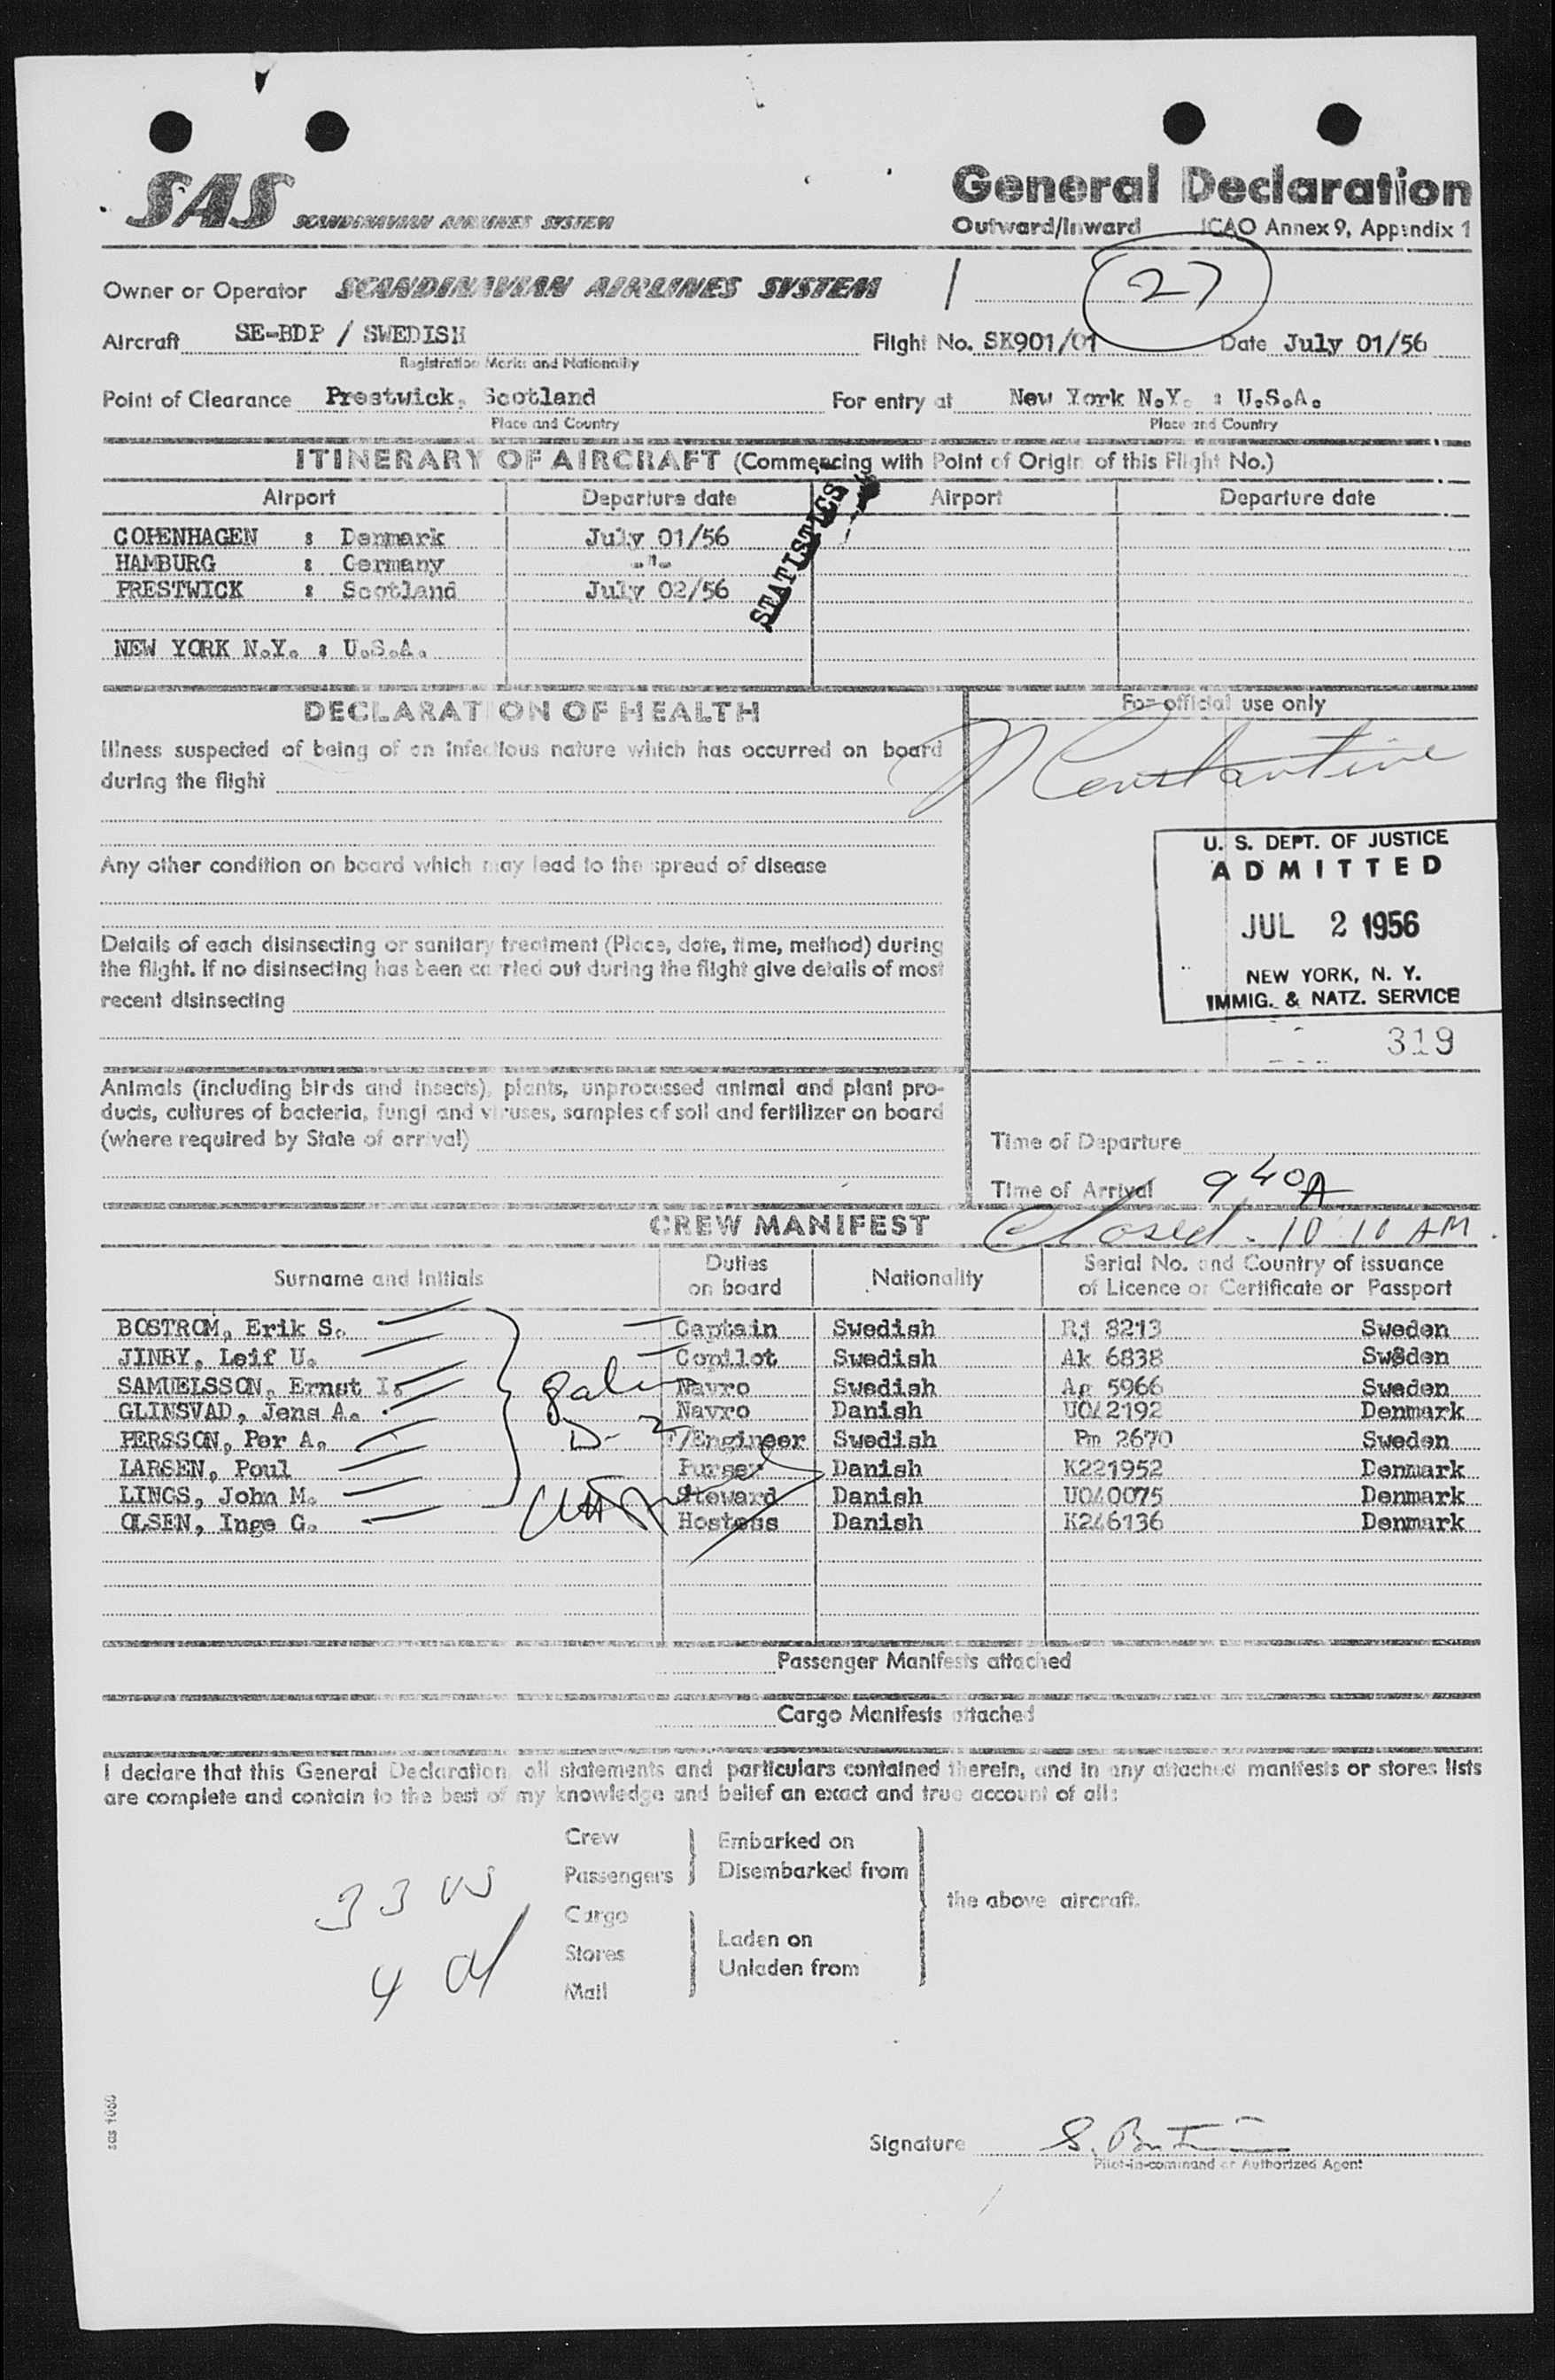 SAS SCANDINAVIAN AIRLINES SYSTEM
General Declaration
Outward/Inward ICAO Annex 9, Appendix 1
Owner or Operator SCANDINAVIAN AIRLINES SYSTEM
27
Aircraft SE-BDP / SWEDISH Flight No. SK901/01 Date July 01/56
Registration Marks and Nationality
Point of Clearance Prestwick, Scotland For entry at New York N.Y. : U.S.A.
Place and Country Place and Country
ITINERARY OF AIRCRAFT (Commencing with Point of Origin of this Flight No.)
Airport Departure date Airport Departure date
STATISTICS
COPENHAGEN : Denmark July 01/56
HAMBURG : Germany -"-
PRESTWICK : Scotland July 02/56
NEW YORK N.Y. : U.S.A.
DECLARATION OF HEALTH
Illness suspected of being of an infectious nature which has occurred on board
during the flight
Any other condition on board which may lead to the spread of disease
Details of each disinsecting or sanitary treatment (Place, date, time, method) during
the flight. If no disinsecting has been carried out during the flight give details of most
recent disinsecting
Animals (including birds and insects), plants, unprocessed animal and plant pro-
ducts, cultures of bacteria, fungi and viruses, samples of soil and fertilizer on board
(where required by State of arrival)
For official use only
Constantine
U. S. DEPT. OF JUSTICE
ADMITTED
JUL 2 1956
NEW YORK, N. Y.
IMMIG. & NATZ. SERVICE
319
Time of Departure
Time of Arrival 940A
Closed - 10 10 AM
CREW MANIFEST
Surname and Initials Duties on board Nationality Serial No. and Country of issuance of Licence or Certificate or Passport
BOSTROM, Erik S. Captain Swedish Rj 8213 Sweden
JINBY, Leif U. Copilot Swedish Ak 6838 Sweden
SAMUELSSON, Ernst I. Navro Swedish Ag 5966 Sweden
GLINSVAD, Jens A. Navro Danish U042192 Denmark
PERSSON, Per A. F/Engineer Swedish Pm 2670 Sweden
LARSEN, Poul Purser Danish K221952 Denmark
LINGS, John M. Steward Danish U040075 Denmark
OLSEN, Inge G. Hostess Danish K246136 Denmark
D-2
Passenger Manifests attached
Cargo Manifests attached
I declare that this General Declaration all statements and particulars contained therein, and in any attached manifests or stores lists
are complete and contain to the best of my knowledge and belief an exact and true account of all:
Crew Embarked on
Passengers Disembarked from
the above aircraft.
Cargo
Stores Laden on
Mail Unladen from
33 US
4
sas 1060
Signature
Pilot-in-command or Authorized Agent